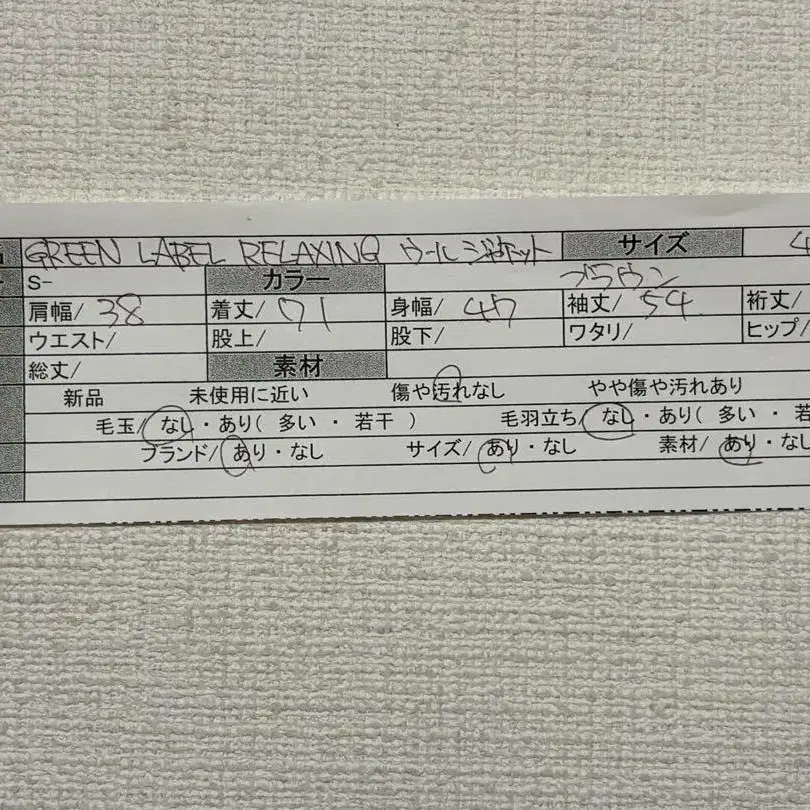 GREEN LABEL RELAXING ウールジャケット サイズ 4
S- カラー ブラウン
肩幅/ 38 着丈/ 71 身幅/ 47 袖丈/ 54 裄丈/
ウエスト/ 股上/ 股下/ ワタリ/ ヒップ/
総丈/ 素材
新品 未使用に近い 傷や汚れなし やや傷や汚れあり
毛玉/ なし・あり( 多い ・ 若干 ) 毛羽立ち/ なし・あり( 多い ・ 若
ブランド/ あり・なし サイズ/ あり・なし 素材/ あり・なし